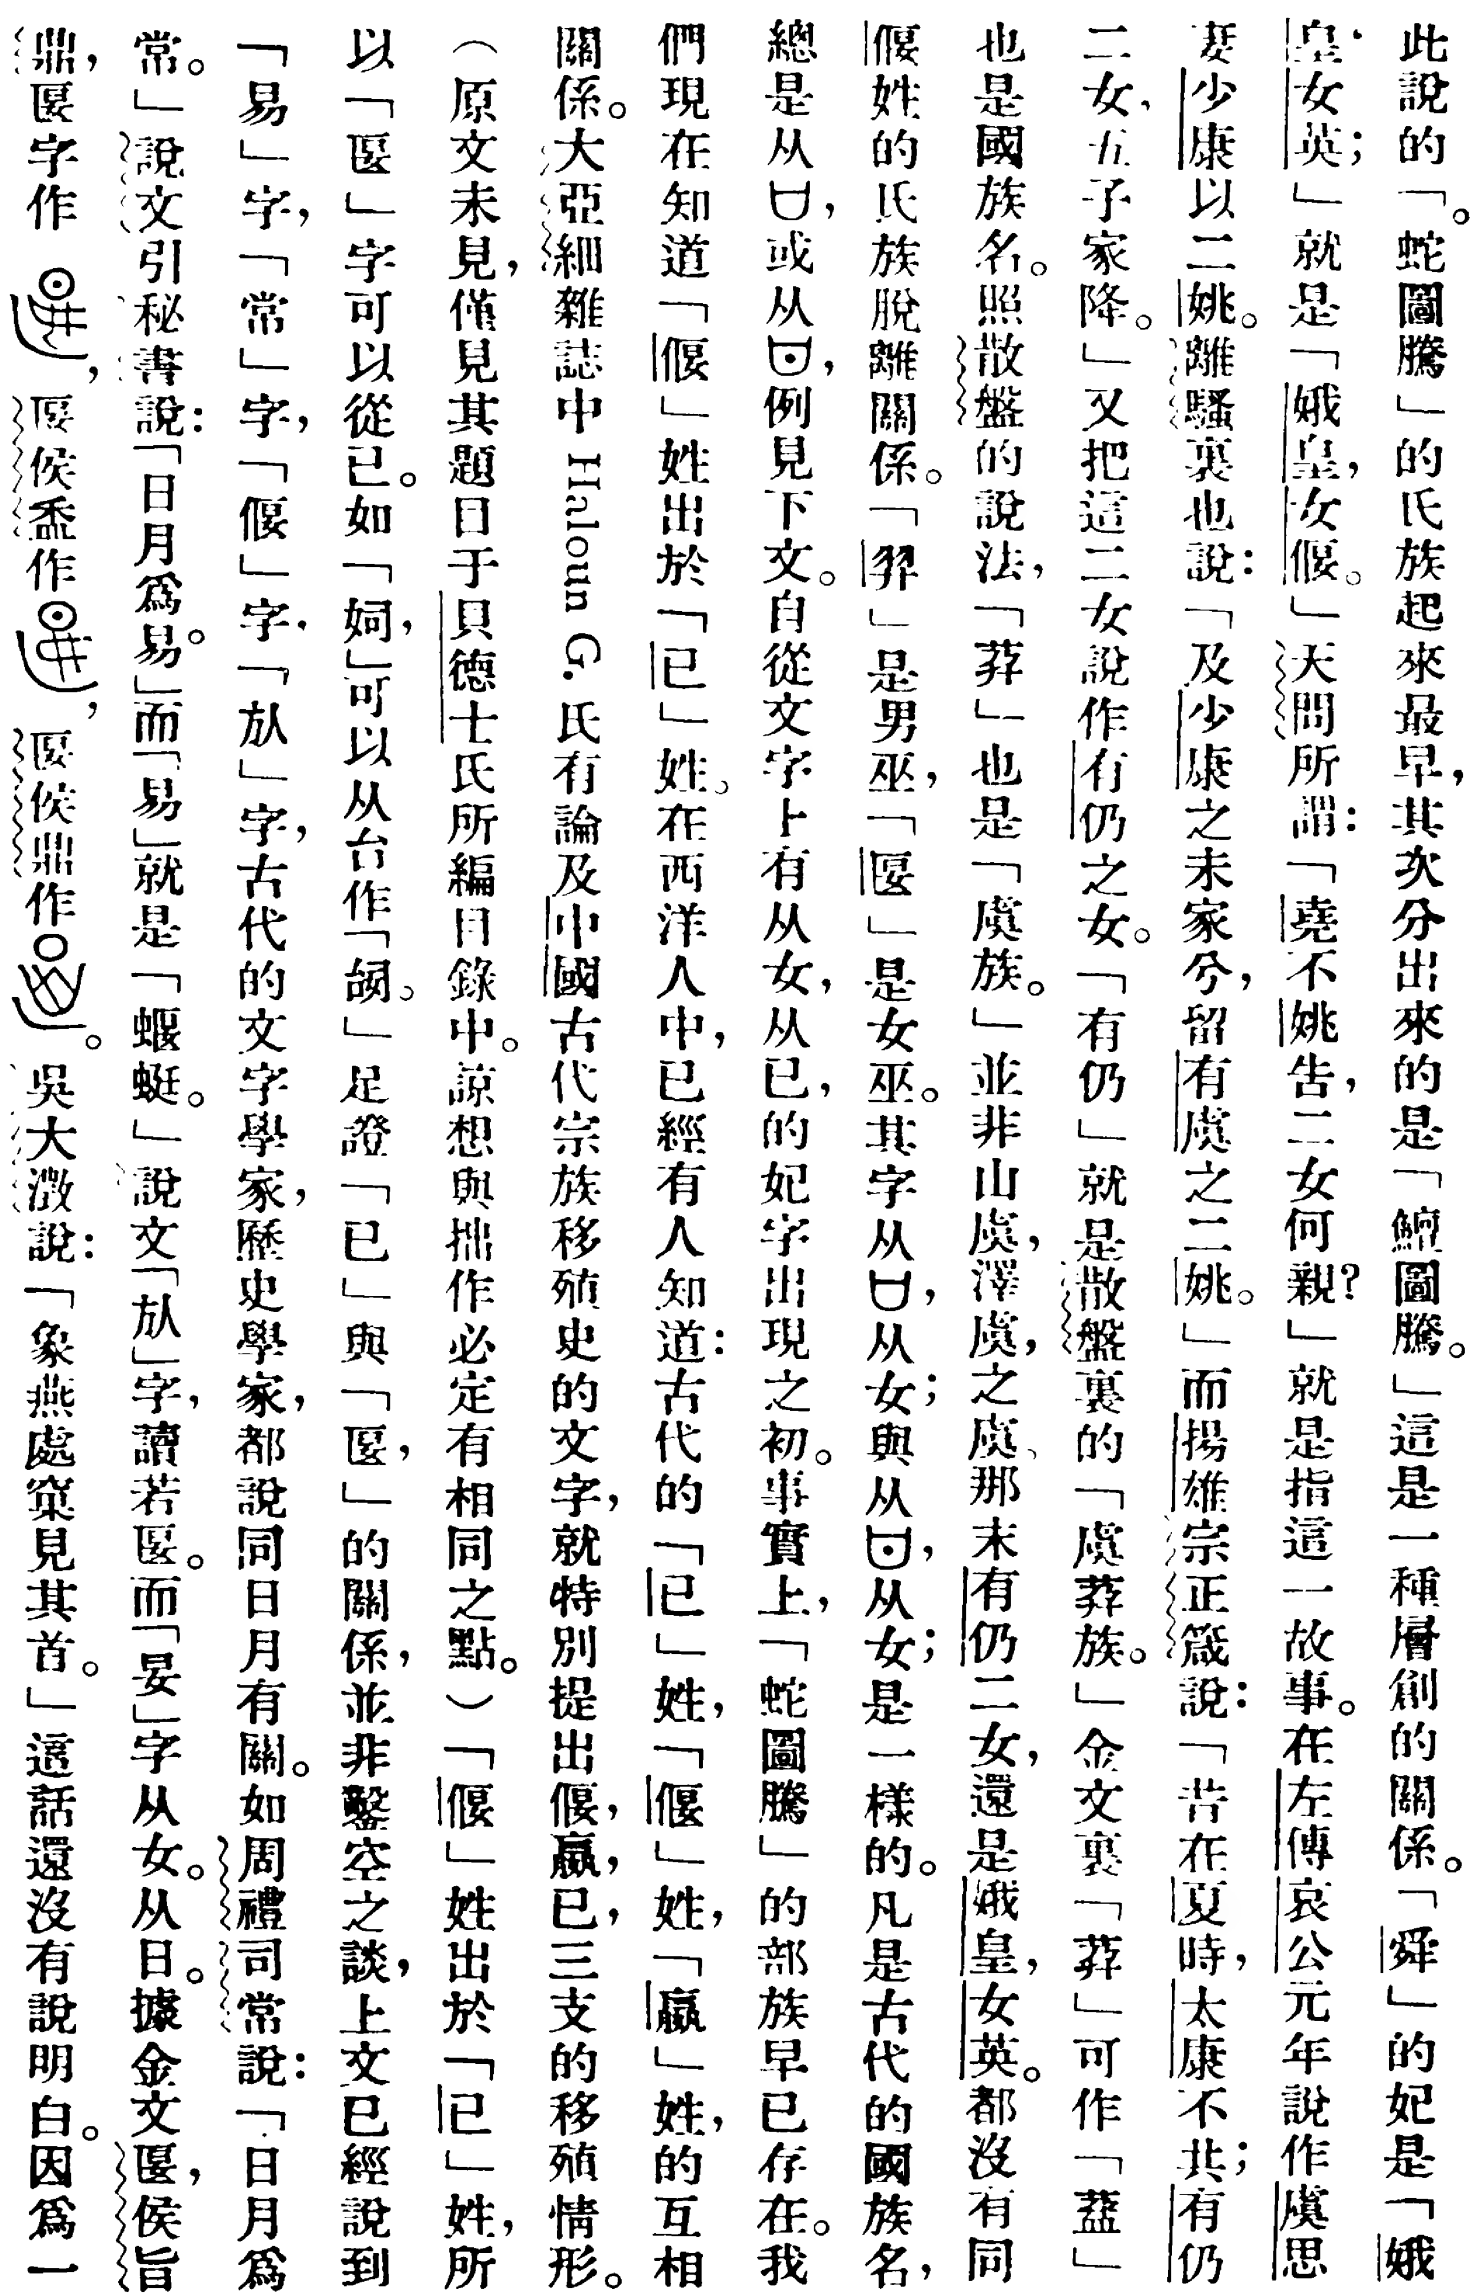 此說的「蛇圖騰」的氏族起來最早，其次分出來的是「鱣圖騰。」這是一種層創的關係。「舜」的妃是「娥
皇，女英；」就是「娥皇，女偃。」天問所謂：「堯不姚告，二女何親？」就是指這一故事。在左傳哀公元年說作虞思
妻少康以二姚。離騷裏也說：「及少康之未家兮，留有虞之二姚。」而揚雄宗正箴說：「昔在夏時，太康不共；有仍
二女，五子家降。」又把這二女說作有仍之女。「有仍」就是散盤裏的「虞莽族。」金文裏「莽」可作「葢」
也是國族名。照散盤的說法，「莽」也是「虞族。」並非山虞，澤虞，之虞、那末有仍二女，還是娥皇，女英。都沒有同
偃姓的氏族脫離關係。「羿」是男巫，「匽」是女巫。其字从𠙵，从女；與从曰，从女；是一樣的。凡是古代的國族名，
總是从𠙵，或从曰，例見下文。自從文字上有从女，从已，的妃字出現之初。事實上，「蛇圖騰」的部族早已存在。我
們現在知道「偃」姓出於「已」姓。在西洋人中，已經有人知道：古代的「已」姓，「偃」姓，「嬴」姓，的互相
關係。大亞細雜誌中 Haloun G. 氏有論及中國古代宗族移殖史的文字，就特別提出偃，嬴，已，三支的移殖情形。
（原文未見，僅見其題目于貝德士氏所編目錄中。諒想與拙作必定有相同之點。）「偃」姓出於「已」姓，所
以「匽」字可以從已。如「姛，」可以从台作「䛐。」足證「已」與「匽，」的關係，並非鑿空之談，上文已經說到
「易」字，「常」字，「偃」字，「㫃」字，古代的文字學家，歷史學家，都說同日月有關。如周禮司常說：「日月爲
常。」說文引秘書說：「日月爲易。」而「易」就是「蝘蜓。」說文「㫃」字，讀若匽。而「妟」字从女。从日。據金文匽侯旨
鼎，匽字作，匽侯盉作，匽侯鼎作。吳大澂說：「象燕處窠見其首。」這話還沒有說明白。因爲一